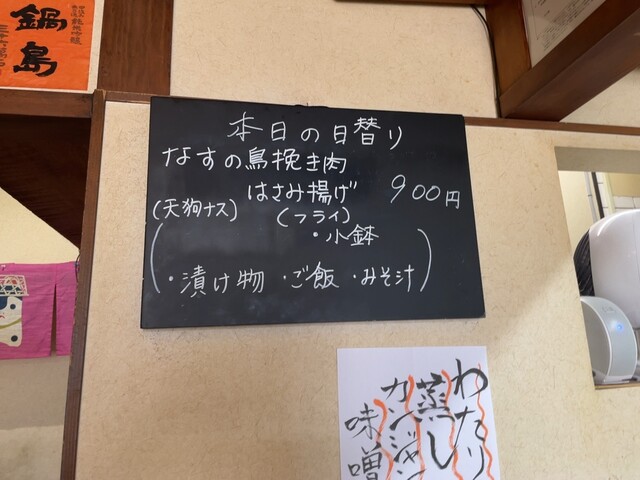 本日の日替り
なすの鳥挽き肉
はさみ揚げ 900円
(天狗ナス) (フライ)
・小鉢
・漬け物 ・ご飯 ・みそ汁
鍋島
わたり
蒸し
カンジャン
味噌